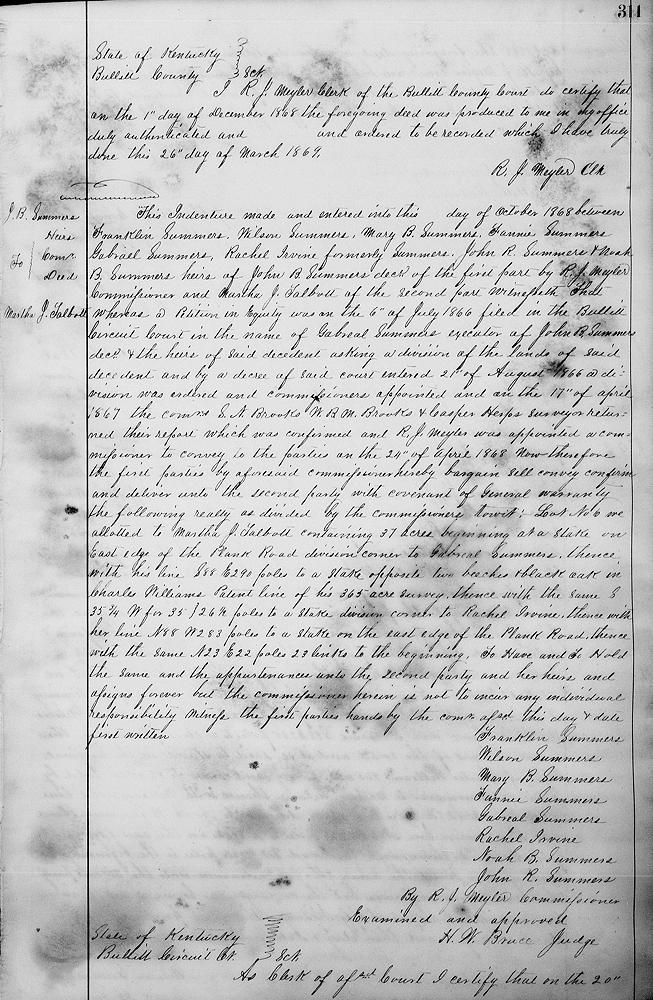 311
State of Kentucky
Bullitt County Sct.
I R. J. Meyler Clerk of the Bullitt County Court do certify that
on the 1st day of December 1868 the foregoing deed was produced to me in my office
duly authenticated and and ordered to be recorded which I have truly
done this 26" day of March 1869.
R. J. Meyler Clk
J. B. Summers
Heirs
To Comr
Deed
Martha J. Talbott
This Indenture made and entered into this day of October 1868 between
Franklin Summers, Wilson Summers, Mary B. Summers, Fannie Summers
Gabriael Summers, Rachel Irvine formerly Summers, John R. Summers & Noah
B. Summers heirs of John B Summers decd of the first part by R. J. Meyler
Commissioner and Martha J. Talbott of the second part Witnesseth That
whereas a Petition in Equity was on the 6" of July 1866 filed in the Bullitt
Circuit Court in the name of Gabreal Summers executor of John B. Summers
decd & the heirs of said decedent asking a division of the lands of said
decedent and by a decree of said court entered 21st of August 1866 a di-
vision was ordered and commissioners appointed and on the 17" of april
1867 the comrs S. N. Brooks W. B. M. Brooks & Casper Hesps Surveyor retur-
ned their report which was confirmed and R. J. Meyler was appointed a com-
missioner to convey to the parties on the 24" of April 1868 Now therefore
the first parties by aforesaid commissioner hereby bargain sell convey confirm
and deliver unto the second party with covenant of General warranty
the following realty as divided by the commissioners towit: Lot No 6 we
allotted to Martha J. Talbott containing 37 acres beginning at a stake on
East edge of the Plank Road division corner to Gabreal Summers, thence
with his line S88 E290 poles to a stake opposite two beeches & black oak in
Charles Williams Patent line of his 365 acre survey, thence with the same S
35¼ W for 35/26½ poles to a stake division corner to Rachel Irvine, thence with
her line N88 W283 poles to a stake on the east edge of the Plank Road, thence
with the same N23 E22 poles 23 links to the beginning, To Have and To Hold
the same and the appurtenances unto the second party and her heirs and
assigns forever but the commissioner herein is not to incur any individual
responsibility Witness the first parties hands by the comr afsd this day & date
first written
Franklin Summers
Wilson Summers
Mary B. Summers
Fannie Summers
Gabreal Summers
Rachel Irvine
Noah B. Summers
John R. Summers
By R. J. Meyler Commissioner
Examined and approved
H. W. Bruce Judge
State of Kentucky
Bullitt Circuit Ct. Sct.
As Clerk of afsd Court I certify that on the 20"